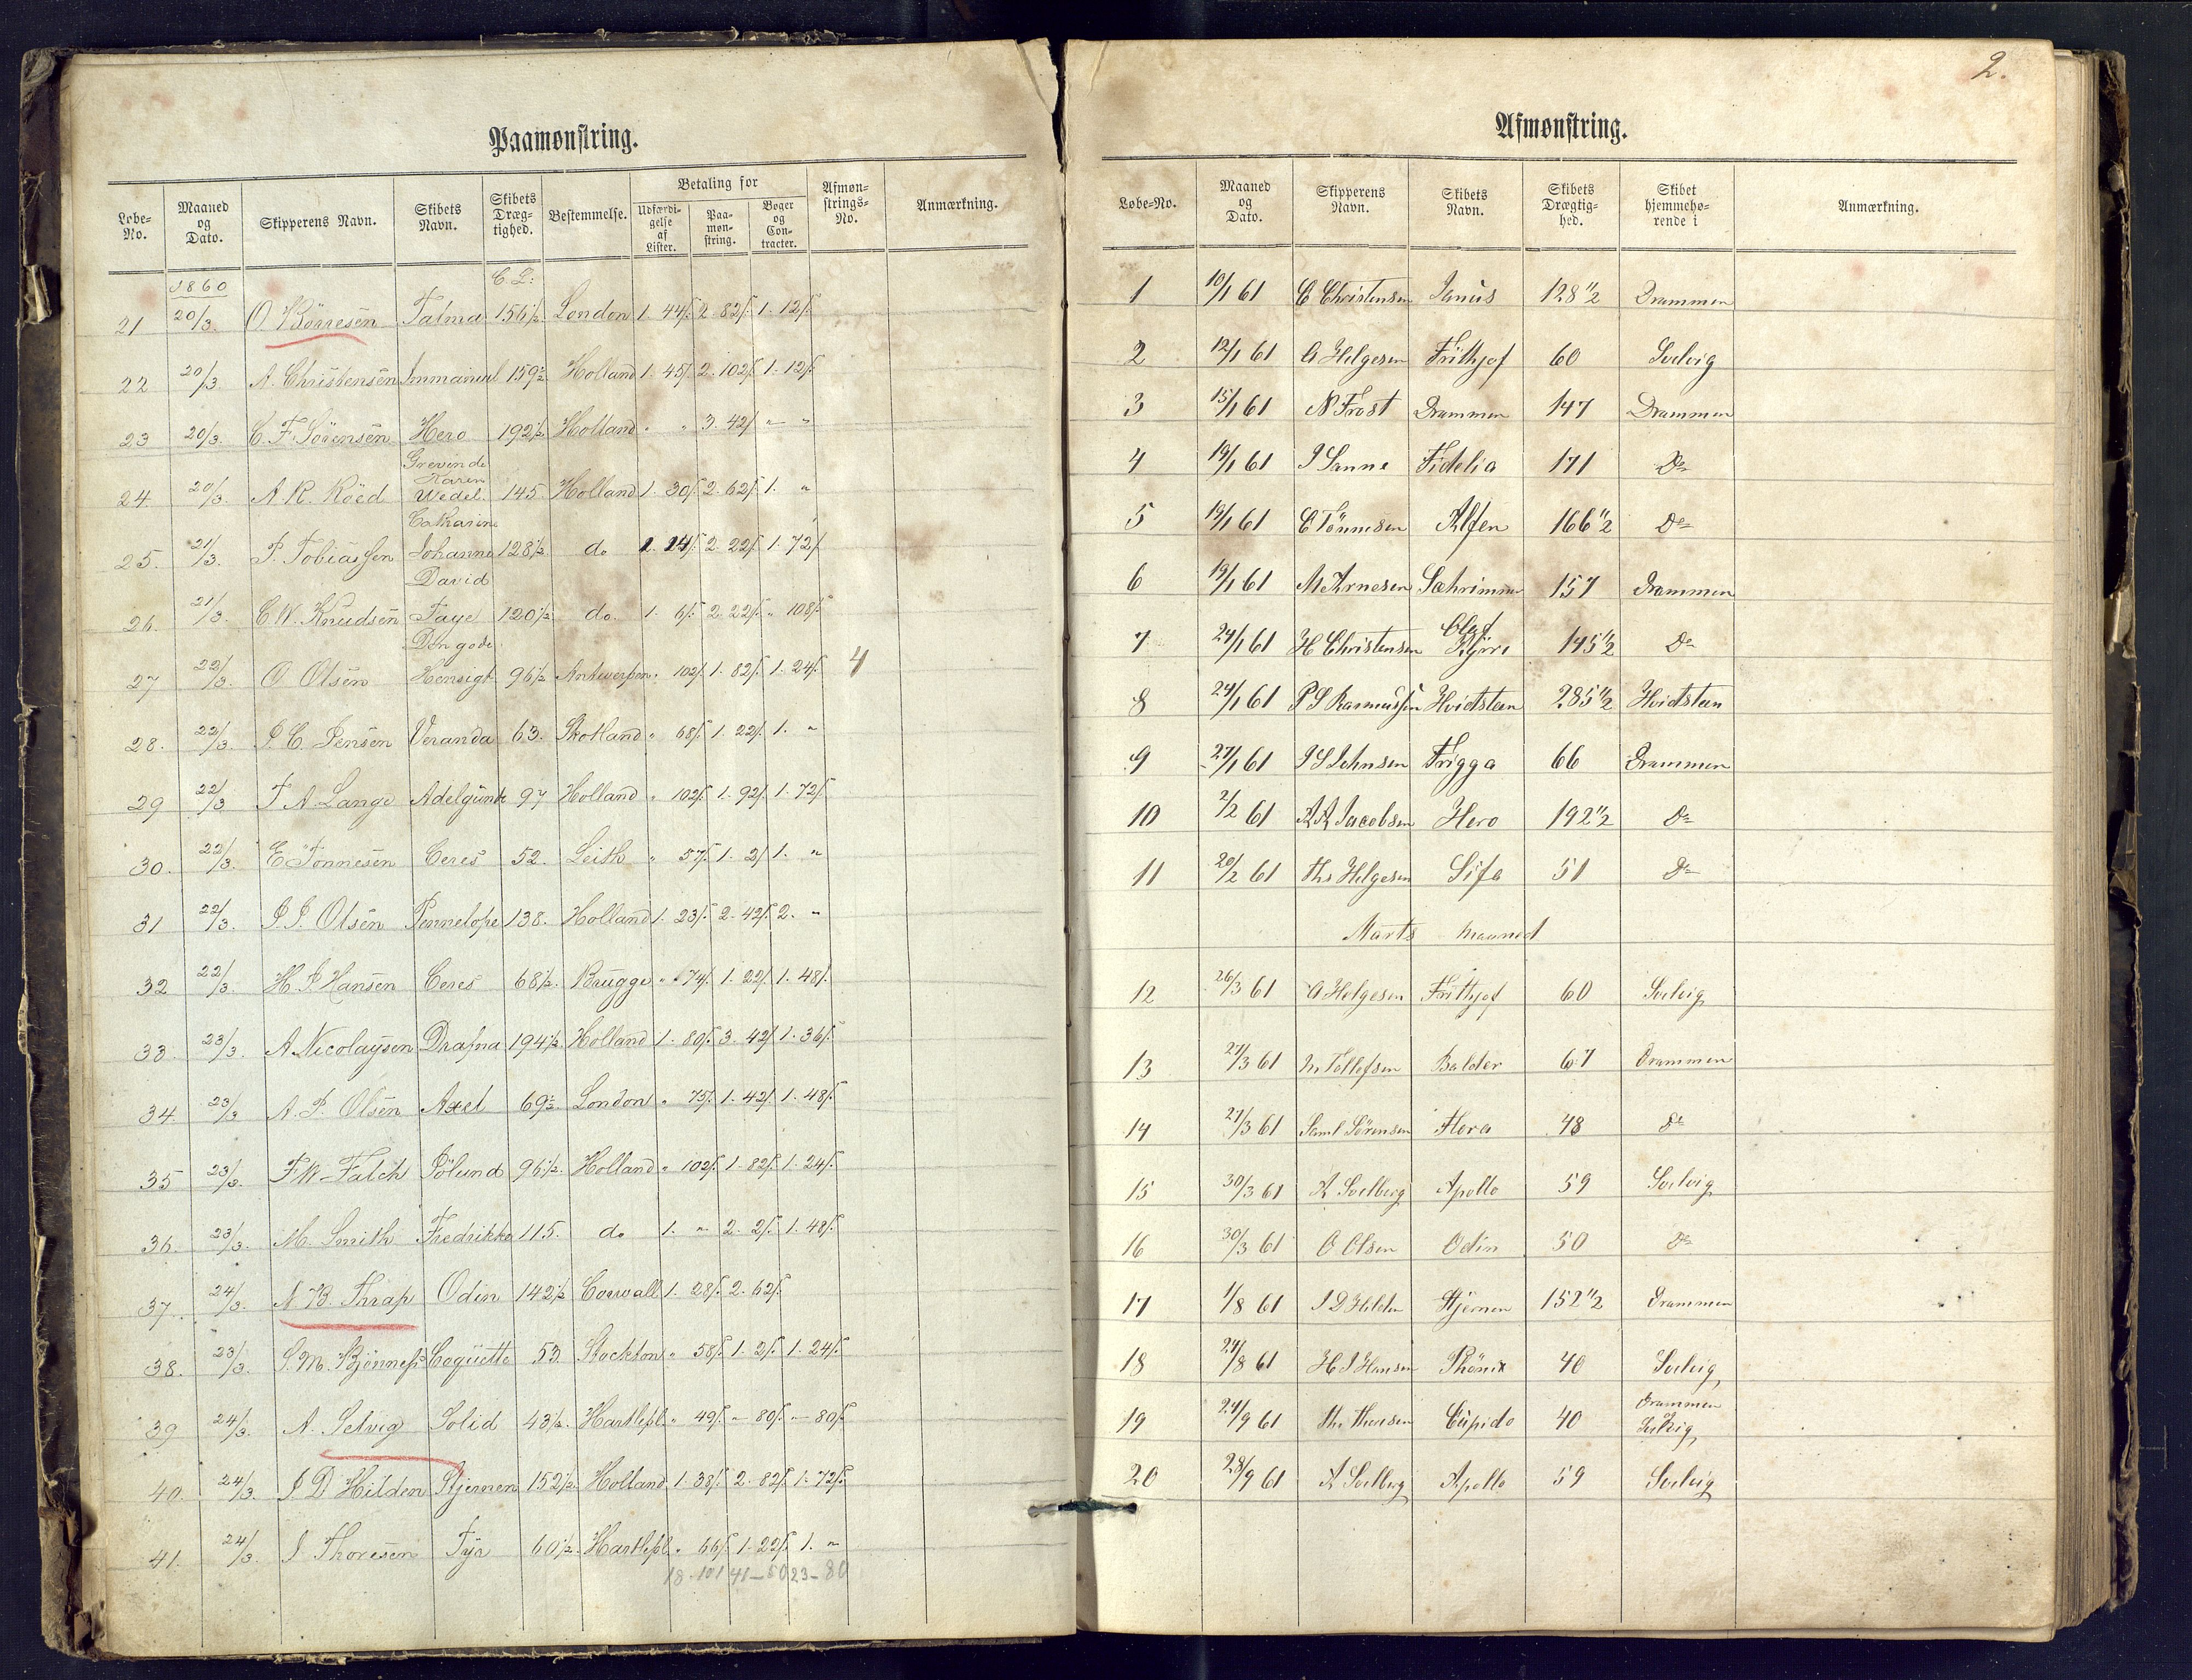 Paamønstring.
Løbe-No. Maaned og Dato. Skipperens Navn. Skibets Navn. Skibets Dræg-tighed. Bestemmelse. Betaling for Udfærdi-gelse af Lister. Paa-møn-string. Bøger og Con-tracter. Afmøn-strings-No. Anmærkning.
1860 C. L:
21 20/3. O Börresen Talma 156½ London 1. 44ß 2. 82ß 1. 12ß
22 20/3 A. Christensen Immanuel 159½ Holland 1. 45ß 2. 102ß 1. 12ß
23 20/3. C. F. Sörensen Hero 192½ Holland " " 3. 42ß " "
24. 20/3. A. R. Röed Grevinde Karen Wedel. 145 Holland 1. 30ß 2. 62ß 1. "
25. 21/3. P. Tobiassen Catharine Johanne 128½ do 1. 14ß 2. 22ß 1. 72ß
26. 21/3. C W. Knudsen David Faye 120½ do. 1. 6ß 2. 22ß " 108ß
27 22/3. O Olsen Den gode Hensigt 96½ Antwerpen " 102ß 1. 82ß 1. 24ß 4
28. 22/3. P. C. Jensen Veranda 63. Skotland " 68ß 1. 22ß 1. "
29 22/3 T A Lange Adelgunde 97 Holland " 102ß 1. 92ß 1. 72ß
30. 22/3. E Tönnesen Ceres 52. Leith " 57ß 1. 2ß 1. "
31 22/3. P. P. Olsen Pennelope 138. Holland 1. 23ß 2. 42ß 2. "
32 22/3. H. P Hansen Ceres 68½. Brugge " 74ß 1. 22ß 1. 48ß
33. 23/3. A Nicolaysen Drafna 194½ Holland 1. 80ß 3. 42ß 1. 36ß
34. 23/3 A. P. Olsen Axel 69½ London " 75ß 1. 42ß 1. 48ß
35 23/3. F W Falch Pölund 96½. Holland " 102ß 1. 82ß 1. 24ß
36. 23/3. M. Smith Fredrikke 115. do 1. " 2. 2ß 1. 48ß
37. 24/3. A. B. Thrap Odin 142½ Corwall 1. 28ß 2. 62ß
38. 23/3. S. M. Bjönness Coquette 53. Stockton " 58ß 1. 2ß 1. 24ß
39 24/3. A. Selvig Solid 43½. Hartlepl. " 49ß " 80ß " 80ß
40. 24/3. P D Hilden Stjernen 152½. Holland 1. 38ß 2. 82ß 1. 72ß
41. 24/3. I Thoresen Fya 60½. Hartlepl. " 66ß 1. 22ß 1. "
18-101 41-50 23-80
2.
Afmønstring.
Løbe-No. Maaned og Dato. Skipperens Navn. Skibets Navn. Skibets Drægtig-hed. Skibet hjemmehø-rende i Anmærkning.
1 10/1 61 C Christensen Janus 128 1/2 Drammen
2 12/1 61 A Helgesen Frithjof 60 Svelvig
3 15/1 61 N Frost Drammen 147 Drammen
4 19/1 61 I Sanne Fidelia 171 Do
5 19/1 61 E Tönnesen Alfen 166 1/2 Do
6 19/1 61 M Arnesen Sæhrimner 157 Drammen
7 24/1 61 H Christensen Olaf Kyrre 145 1/2 Do
8 24/1 61 P S Rasmussen Hvidsteen 285 1/2 Hvidsteen
9 27/1 61 I S Johnsen Frigga 66 Drammen
10 2/2 61 A A Jacobsen Hero 192 1/2 Do
11 20/2 61 Ths Helgesen Sifa 51 Do
Marts maaned
12 26/3 61 A Helgesen Frithjof 60 Svelvig
13 27/3 61 M Tollefsen Balder 67 Drammen
14 27/3 61 Saml Sörensen Flora 48 Do
15 30/3 61 A Soelberg Apollo 59 Svelvig
16 30/3 61 O Olsen Odin 50 Do
17 1/8 61 I D Hilden Stjernen 152 1/2 Drammen
18 24/8 61 H I Hansen Phönix 40 Svelvig
19 24/9 61 Th. Thoresen Cupido 40 Drammen Svelvig
20 28/9 61 A Soelberg Apollo 59 Svelvig